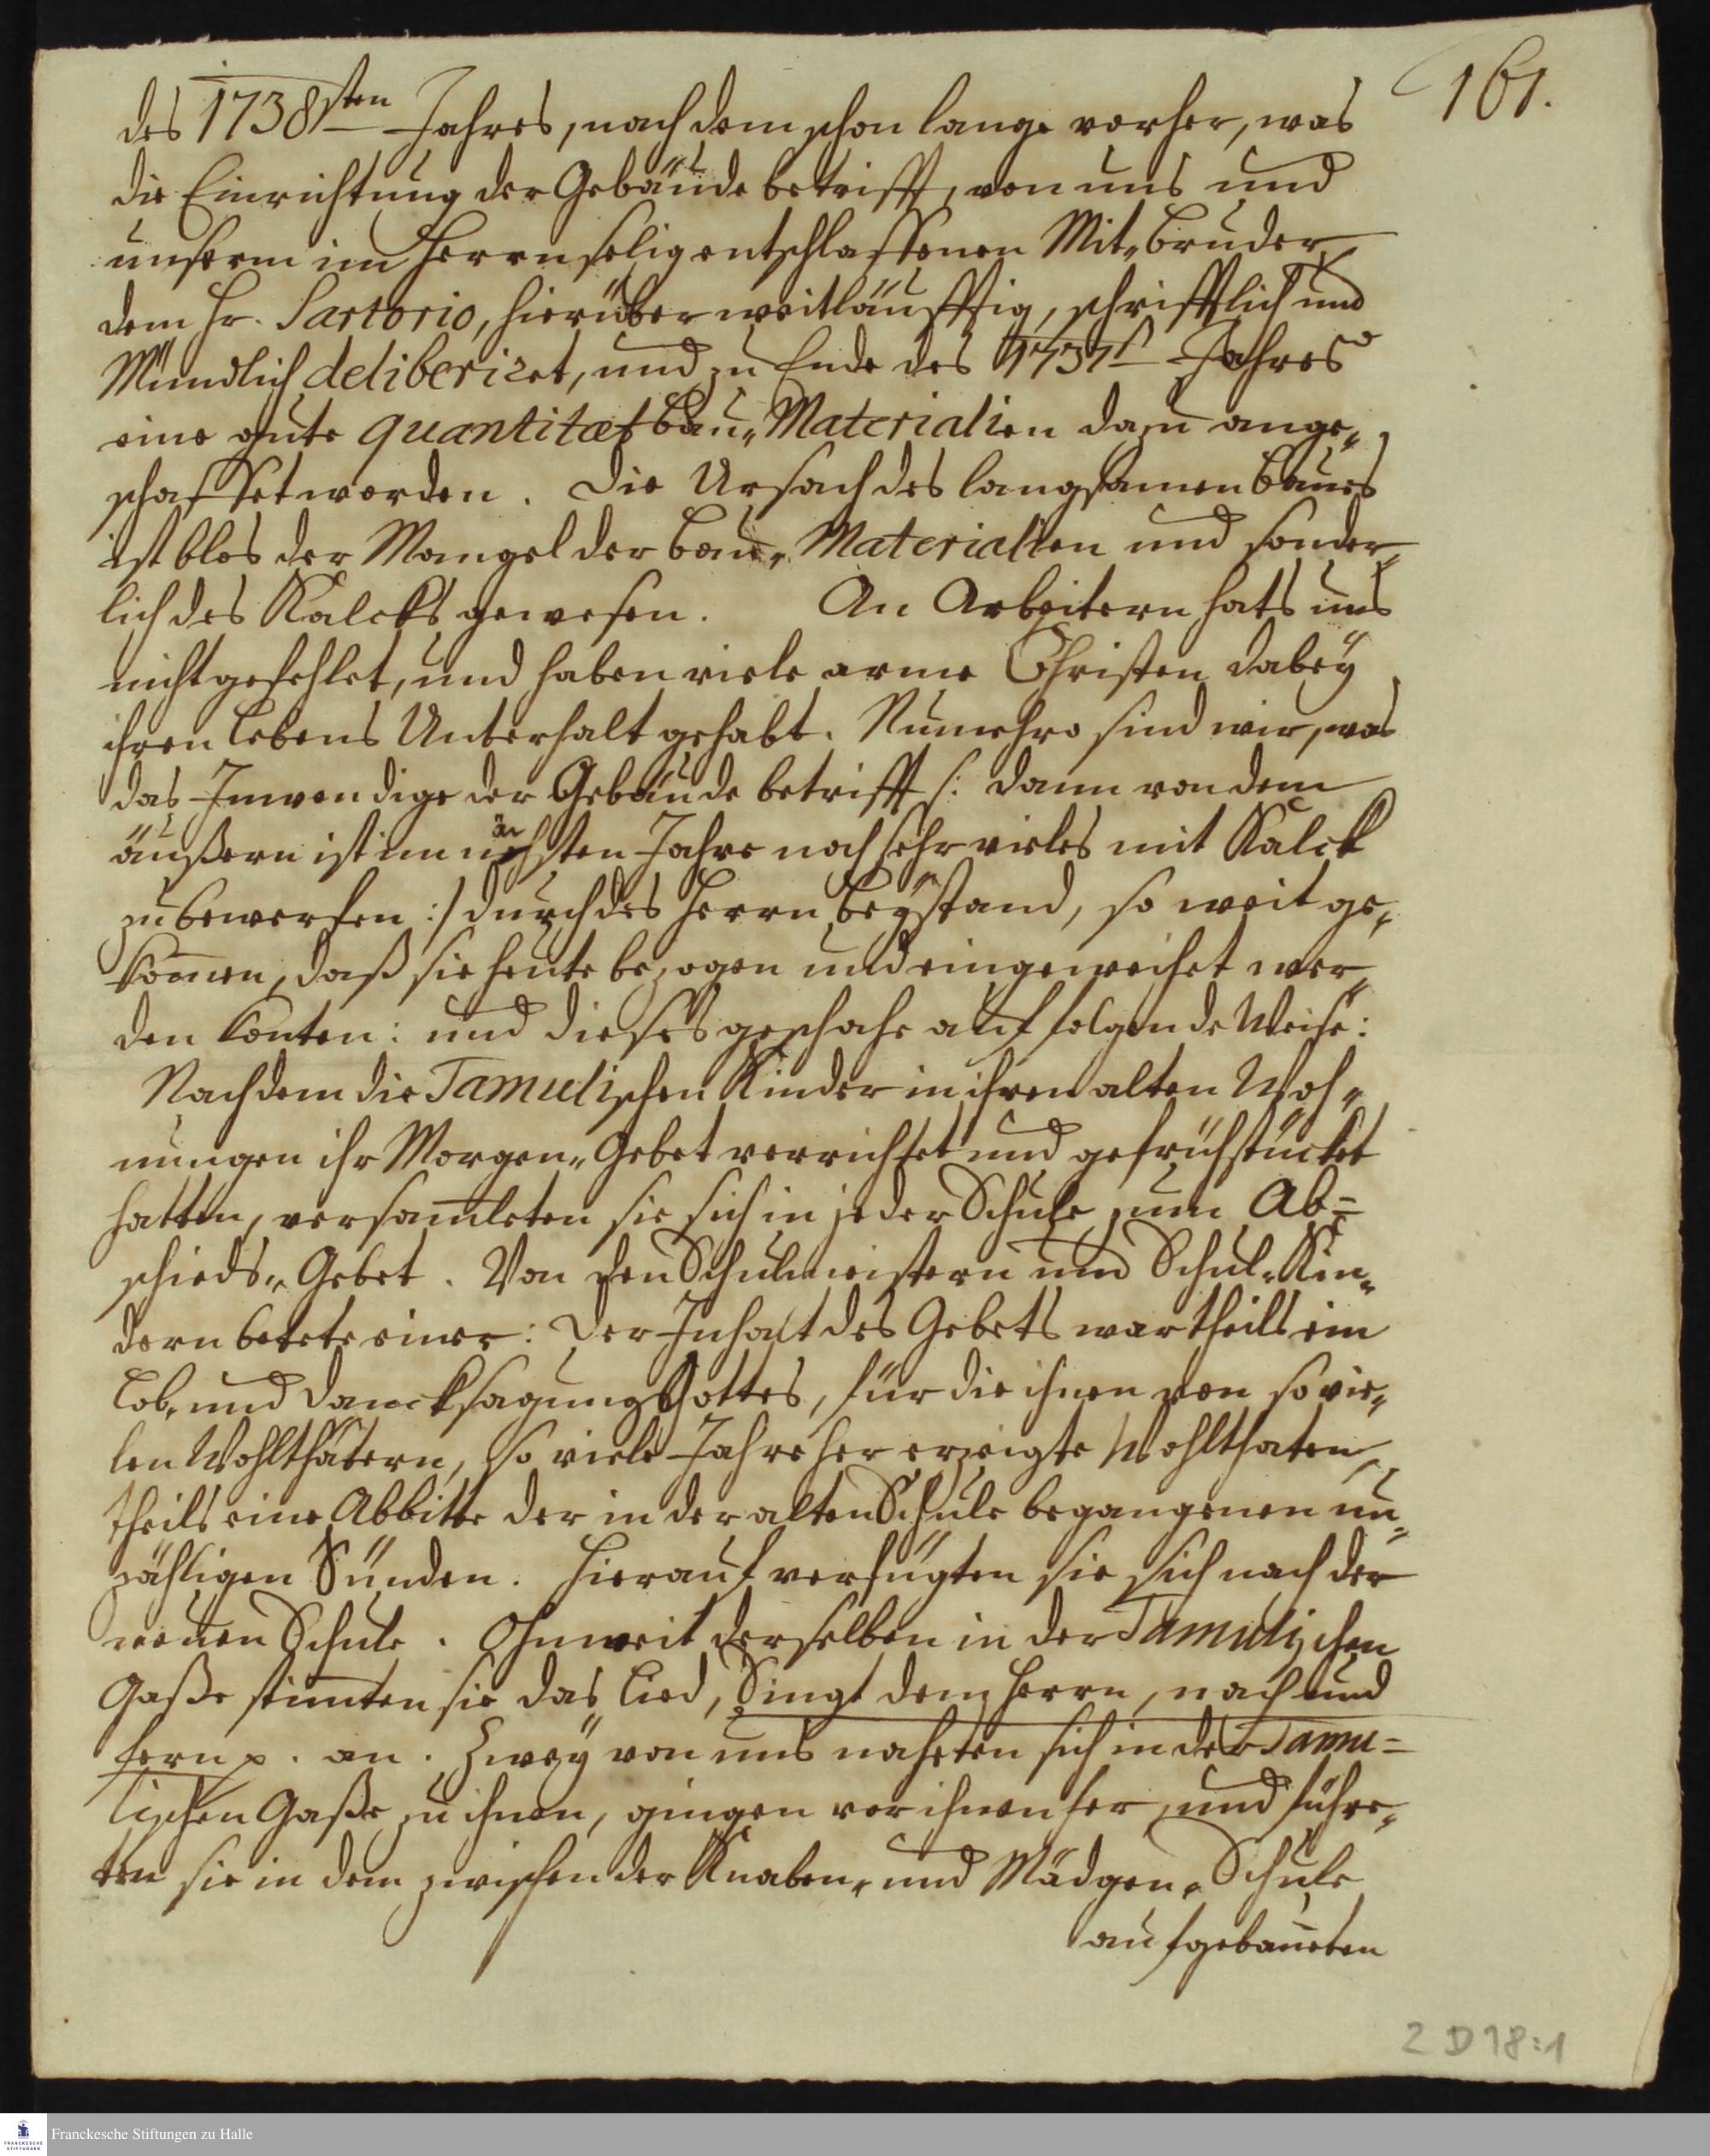 161.
des 1738sten Jahres, nach dem schon lange vorher, was
die Einrichtung der Gebäude betrifft, von uns und
unserm im Herrn selig entschlaffenen Mit„bruder,
dem Hr. Sartorio, hierüber weitläufftig, schrifftlich und
Mündlich deliberiret, und zu Ende des 1737st Jahres
eine gute quantitæt bau„Materialien dazu ange„
schaffet worden. Die Ursach des langsamen baues
ist blos der Mangel der bau„Materialien und sonder„
lich des Kalcks gewesen. An Arbeitern hats uns
nicht gefehlet, und haben viele arme Christen dabeÿ
ihren lebens Unterhalt gehabt. Nunmehro sind wir, was
das Inwendige der Gebäude betrifft /: dann von dem
äußern ist im nächsten Jahre noch sehr vieles mit Kalck
zu bewerfen :/ durch des Herrn beÿstand, so weit ge„
kom̅en, daß sie heute bezogen und eingeweihet wer„
den konten: und dieses geschahe auf folgende Weise:
Nachdem die Tamulischen Kinder in ihren alten Woh„
nungen ihr Morgen„Gebet verrichtet und gefrühstücket
hatten, versam̅leten sie sich in jeder Schule zum Ab=
schieds„Gebet. Von den Schulmeistern und Schul„Kin„
dern betete einer: Der Inhalt des Gebets war theils ein
lob„und Dancksagung Gottes, für die ihnen von so vie„
len Wohlthätern, so viele Jahre her erzeigte Wohlthaten,
theils eine Abbitte der in der alten Schule begangenen un„
zähligen Sünden. Hierauf verfügten sie sich nach der
neuen Schule. Ohnweit derselben in der Tamulischen
Gaße stim̅ten sie das lied, Singt dem Herrn, nah und
fern p. an. Zweÿ von uns naheten sich in der Tamu=
lischen Gaße zu ihnen, gingen vor ihnen her, und führe„
ten sie in dem zwischen der Knaben„und Mädgen„Schule
aufgebaueten
2 D 18:1
Franckesche Stiftungen zu Halle
FRANCKESCHE
STIFTUNGEN